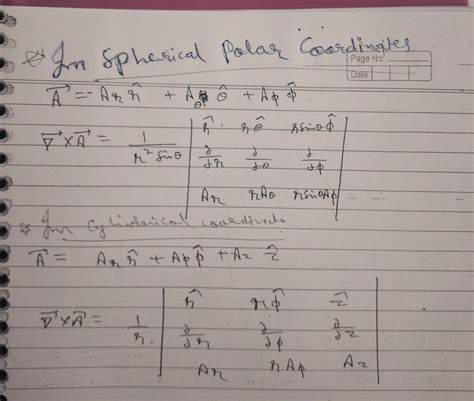 In Spherical Polar Coordinates
Page No:
Date
A⃗ = Ar r̂ + Aθ θ̂ + Aϕ ϕ̂
∇⃗×A⃗ = 1/(r² sinθ) | r̂ rθ̂ rsinθ ϕ̂ |
| ∂/∂r ∂/∂θ ∂/∂ϕ |
| Ar rAθ rsinθAϕ |
In cylinderical coordinats
A⃗ = Ar r̂ + Aϕ ϕ̂ + Az ẑ
∇⃗×A⃗ = 1/r. | r̂ rϕ̂ ẑ |
| ∂/∂r ∂/∂ϕ ∂/∂z |
| Ar rAϕ Az |